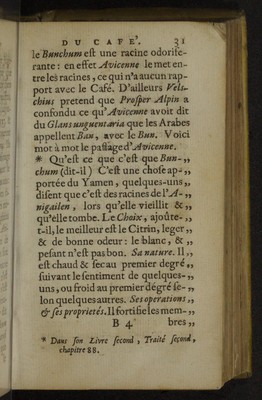 DU CAFÉ. 31
le Bunchum est une racine odorife-
rante : en effet Avicenne le met en-
tre les racines, ce qui n'a aucun rap-
port avec le Café. D'ailleurs Vels-
chius pretend que Prosper Alpin a
confondu ce qu'Avicenne avoit dit
du Glans unguentaria que les Arabes
appellent Bau, avec le Bun. Voici
mot à mot le passage d'Avicenne.
* Qu'est ce que c'est que Bun- „
chum (dit-il) C'est une chose ap- „
portée du Yamen, quelques-uns „
disent que c'est des racines de l'A- „
nigailen, lors qu'elle vieillit & „
qu'elle tombe. Le Choix, ajoûte- „
t-il, le meilleur est le Citrin, leger „
& de bonne odeur : le blanc, & „
pesant n'est pas bon. Sa nature. Il „
est chaud & sec au premier degré „
suivant le sentiment de quelques- „
uns, ou froid au premier dégré se- „
lon quelques autres. Ses operations „
& ses proprietés. Il fortifie les mem- „
B 4 bres „
* Dans son Livre second, Traité second,
chapitre 88.